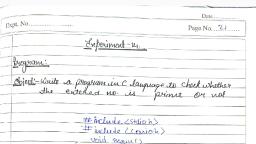 Date
Expt. No.
Page No. 21
Experiment - 21
Program:
Object:- Write a program in C language to check whether
the entered no is prime or not
#include <stdio.h>
#include <conio.h>
void main()